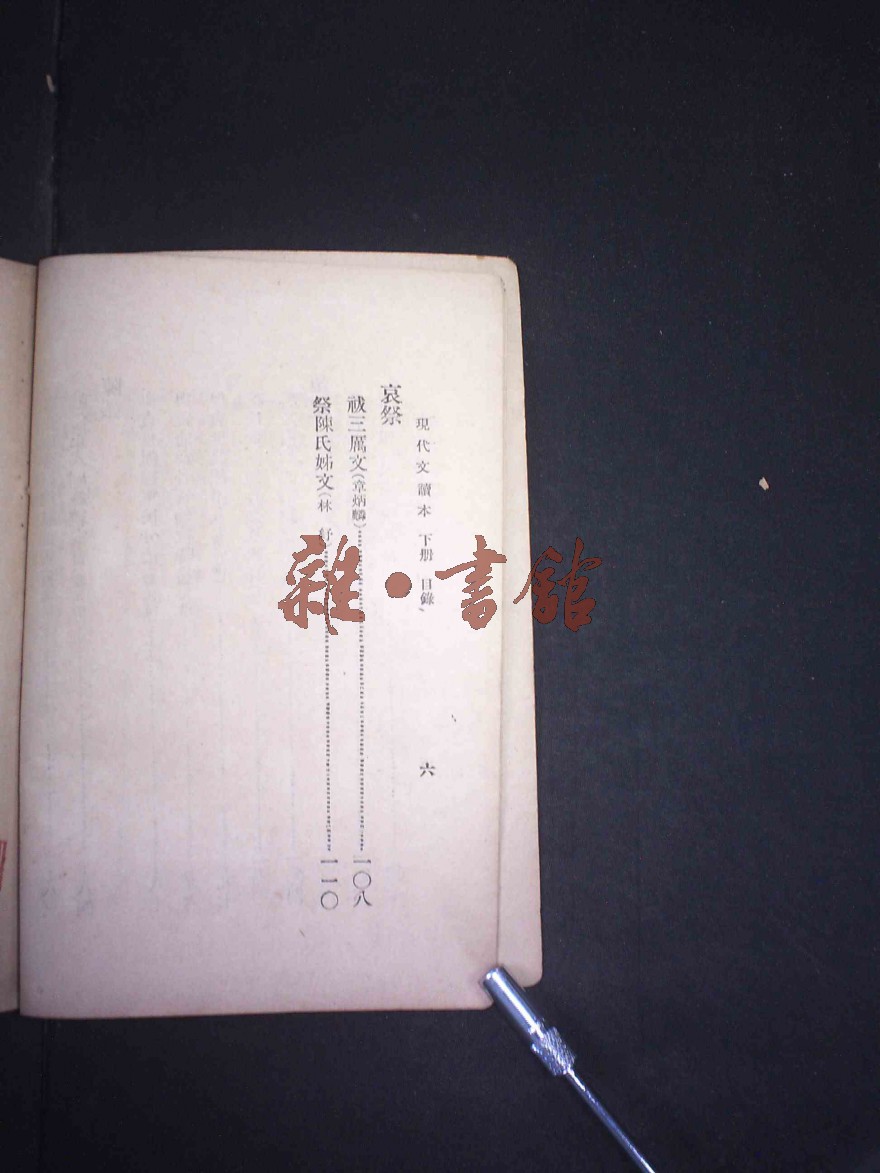 現代文讀本 下册 目錄 六
哀祭
祓三厲文(章炳麟)……一〇八
祭陳氏姊文(林紓)……一一〇
雜·書館